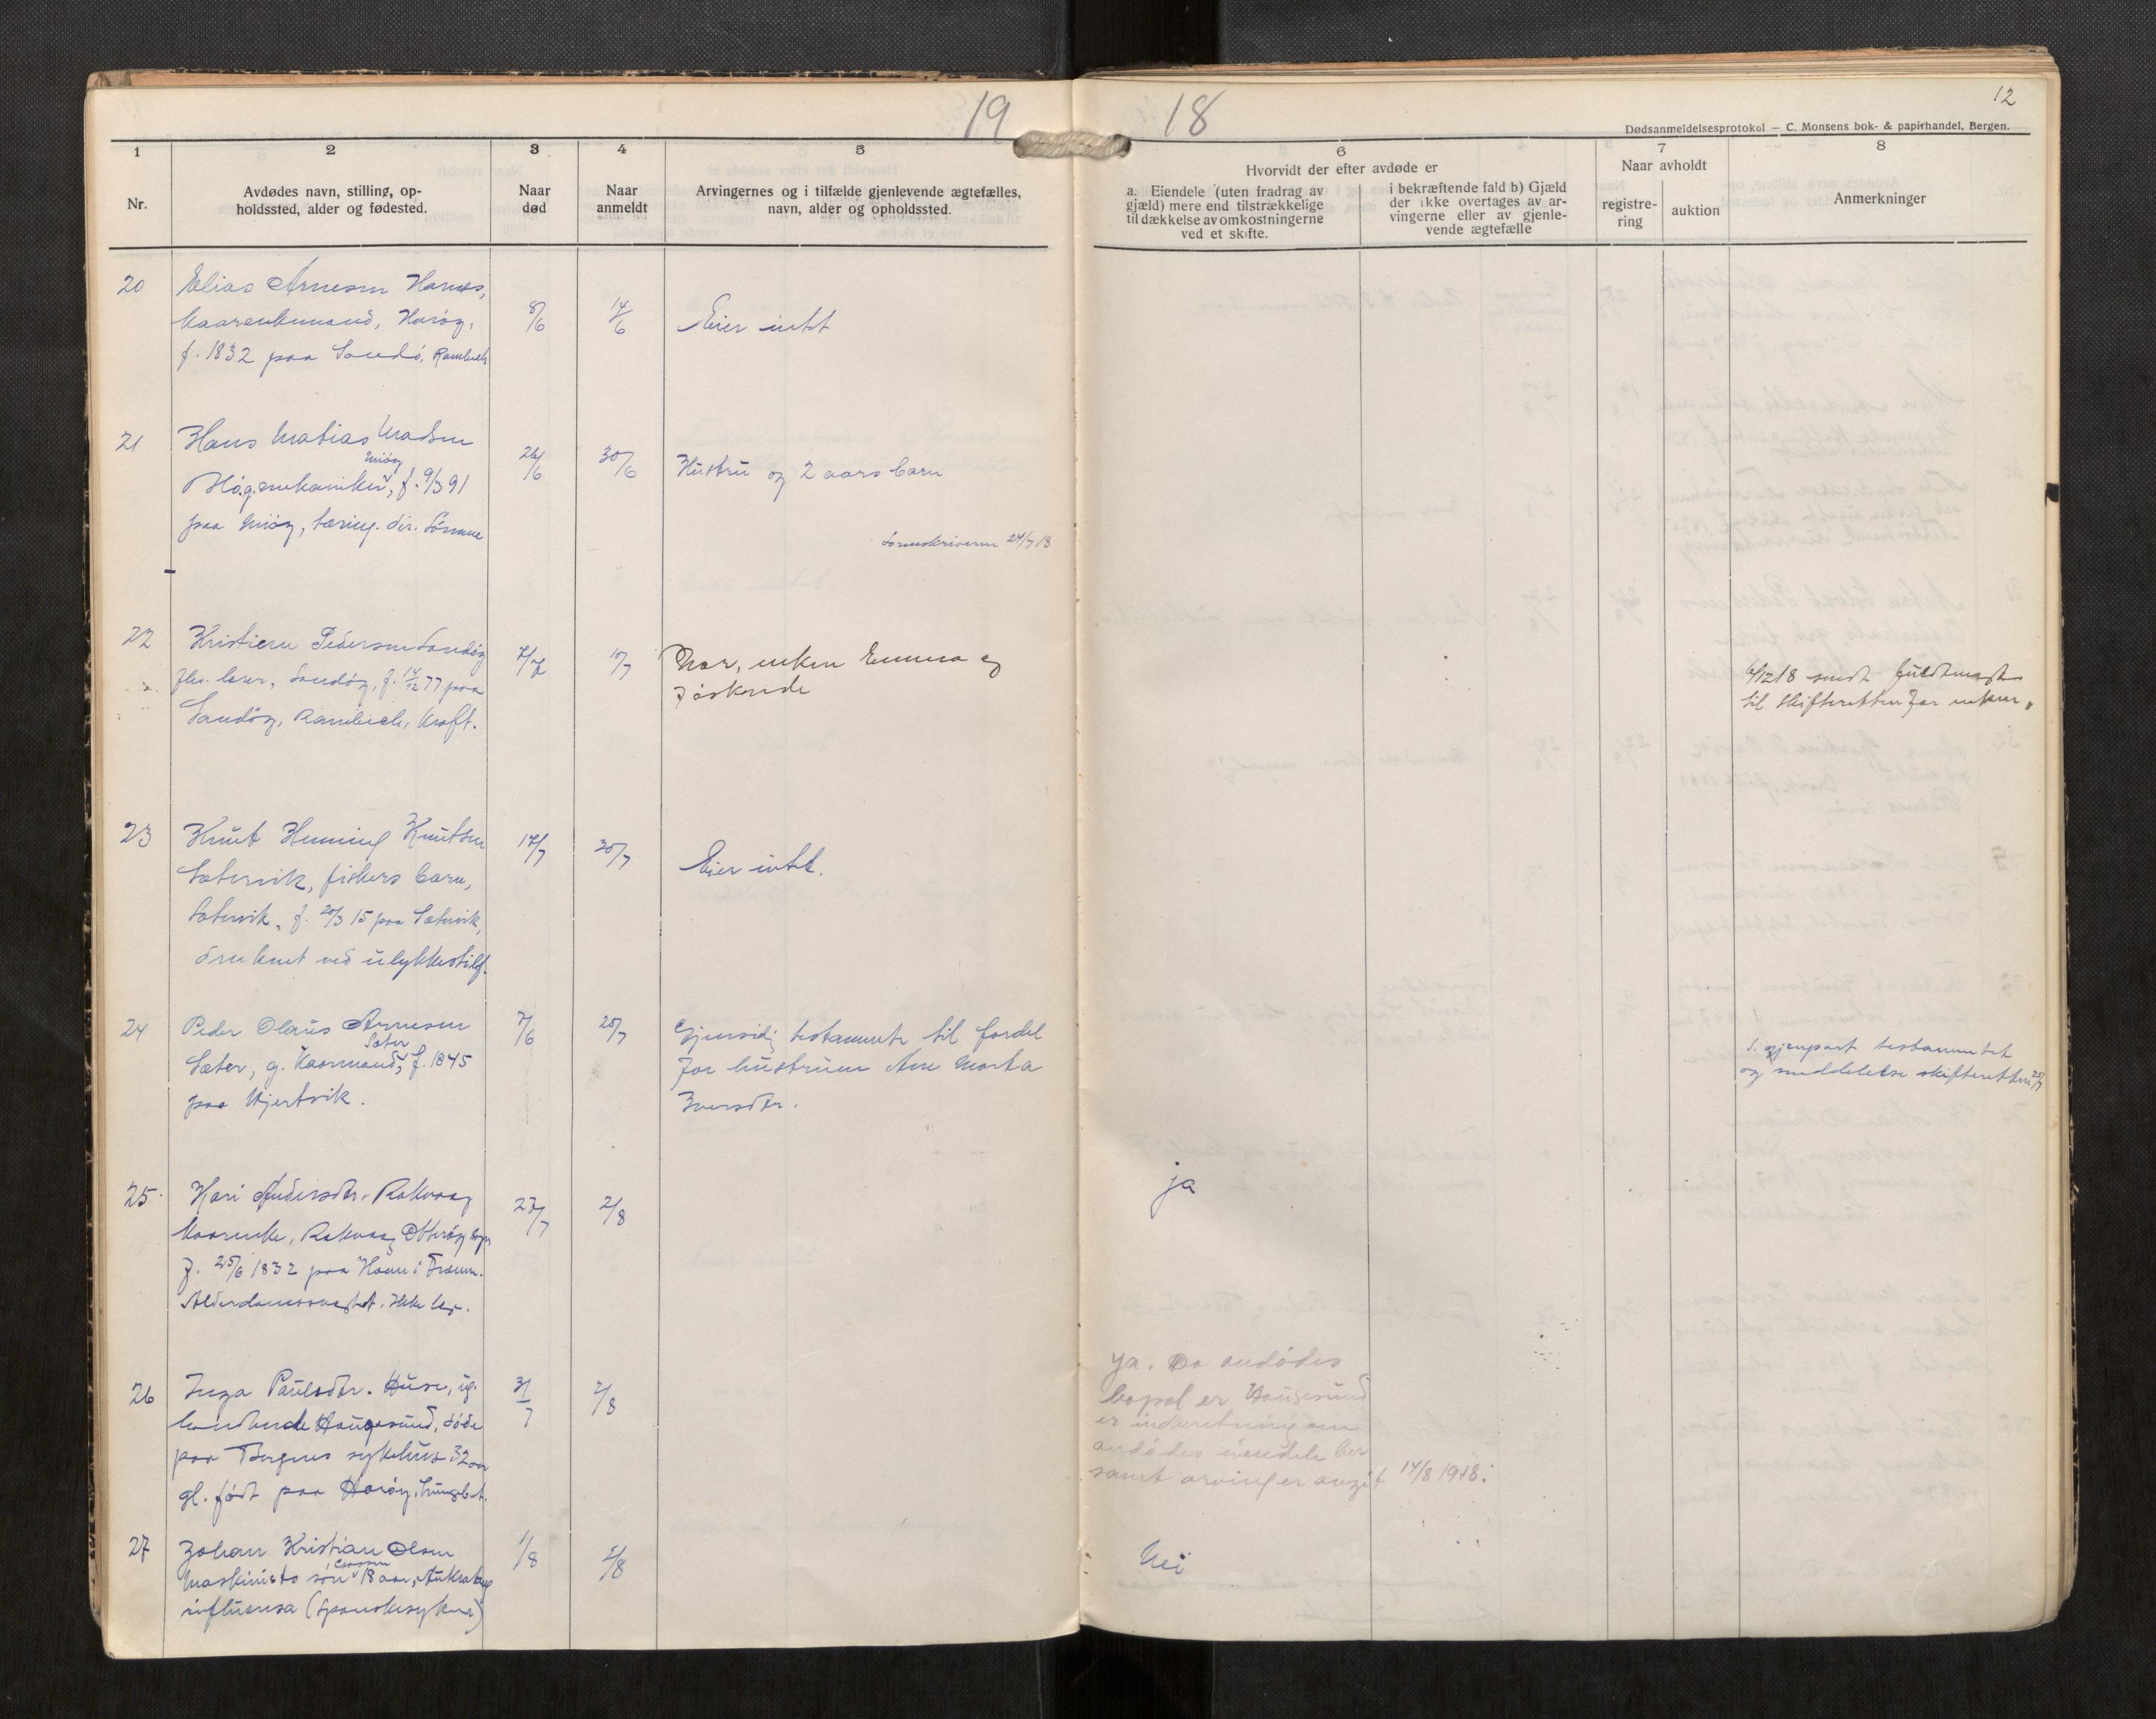 19 18
12
Dødsanmeldelsesprotokol — C. Monsens bok- & papirhandel, Bergen.
1 2 3 4 5 6 7 8
Nr.
Avdødes navn, stilling, op-
holdssted, alder og fødested.
Naar
død
Naar
anmeldt
Arvingernes og i tilfælde gjenlevende ægtefælles,
navn, alder og opholdssted.
Hvorvidt der efter avdøde er
a. Eiendele (uten fradrag av
gjæld) mere end tilstrækkelige
til dækkelse av omkostningerne
ved et skifte.
i bekræftende fald b) Gjæld
der ikke overtages av ar-
vingerne eller av gjenle-
vende ægtefælle
Naar avholdt
registre-
ring
auktion
Anmerkninger
20 Elias Arnesen Harnes, 8/6 14/6 Eier intet
kaarenkemand, Harøy,
f. 1832 paa Sandø,
21 Hans Matias Madsen 26/6 30/6 Hustru og 2 aars barn
Miøy
f. 9/3 91
paa Miøy, tæring.
24/7 18
22 Kristian Pedersen Sandøy 7/7 10/7 enken Emma og
Sandøy, f. 14/12 77 paa
Sandøy, kræft.
6/12 18 sendt
til skifteretten for enken.
23 Knut Henning Knutsen 17/7 20/7 Eier intet.
Sætervik, fiskers barn,
Sætervik, f. 20/3 15 paa Sætervik,
druknet ved ulykkestilf.
24 Peder Olaus Arnesen 7/6 25/7 Gjensidig testamente til fordel
Sæter
Sæter, g. kaarmand, f. 1845 for hustruen Ane Marta
paa Hjertvik. Iversdtr.
1. gjenpart testamentet
og meddelelse skifteretten 25/7
25 Kari Andersdtr. Rakvaag 27/7 2/8 ja
kaarenke, Rakvaag, Otterøy
f. 25/6 1832 paa Ikke
26 Inga Paulsdtr. Huse, ug. 31/7 2/8 Ja. Da avdødes
Haugesund, døde bopel er Haugesund
paa Bergens sykehus 32 aar er indberetning om
gl. født paa Harøy. avdødes eiendele
samt arvinger avgit 14/8 1918.
27 Johan Kristian Olsen 1/8 5/8 Nei
maskinists søn 18 aar, Aukra
influensa (spanskesyken)